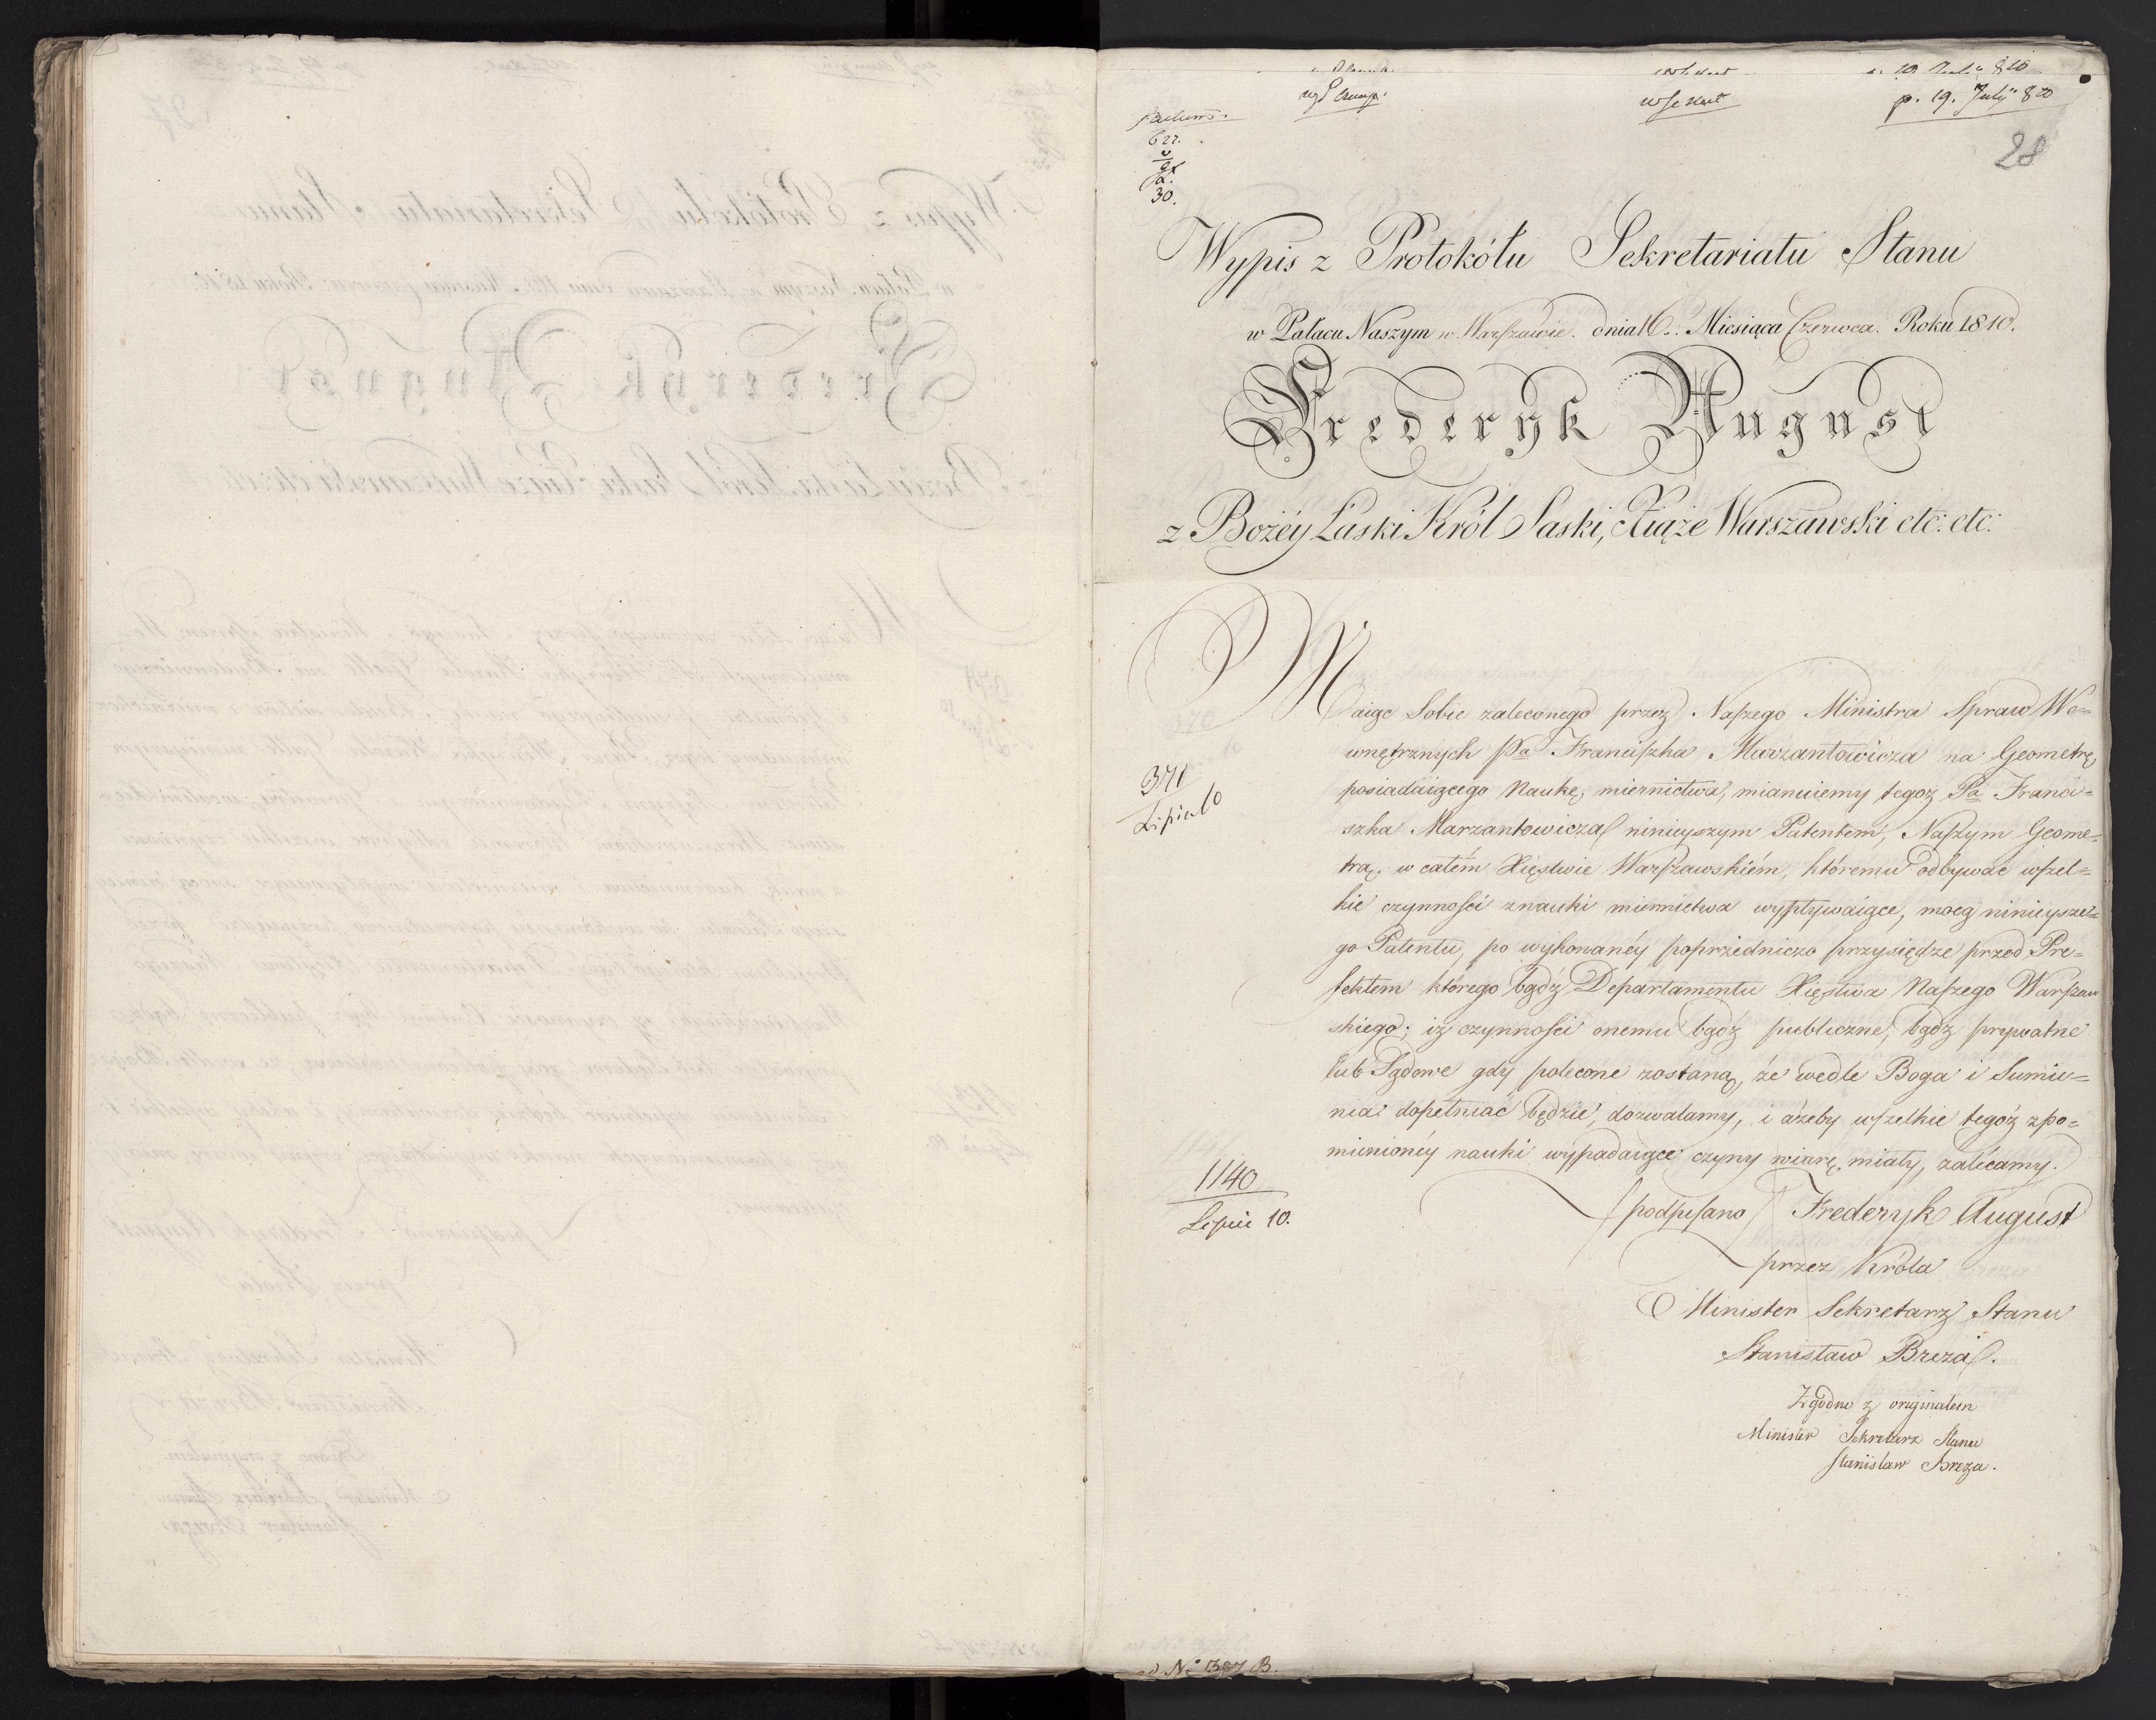 p. 19. July 810
28
622.
30.
Wypis z Protokółu Sekretariatu Stanu
w Pałacu Naszym w Warszawie. dnia 16. Miesiąca Czerwca. Roku 1810.
Frederyk August
z Bożéy Łaski Król Saski, Xiąże Warszawski etc: etc:
Maiąc Sobie zaleconego przez Naszego Ministra Spraw We=
wnętrznych Pa Franciszka Marzantowicza na Geometrę
posiadaiącego Naukę miernictwa, mianuiemy tegoż Pa Franci=
szka Marzantowicza ninieyszym Patentem, Naszym Geome=
trą, w całém Xięstwie Warszawskiém, któremu odbywać wszel=
kie czynności z nauki miernictwa wypływaiące, mocą ninieysze=
go Patentu, po wykonanéy poprzedniczo przysiędze przed Pre=
fektem którego bądź Departamentu Xięstwa Naszego Warszaw
skiego; iż czynności onemu bądź publiczne, bądź prywatne
lub Sądowe gdy polecone zostaną, że wedle Boga i Sumie=
nia dopełniać będzie, dozwalamy, i ażeby wszelkie tegoż z po=
mienionéy nauki wypadaiące czyny wiarę miały, zalecamy.
371
Lipca 10
1140
Lipca 10.
/podpisano/ Frederyk August
przez Króla
Minister Sekretarz Stanu
Stanisław Breza.
Zgodno z oryginałem
Minister Sekretarz Stanu
Stanisław Breza.
ad No 1387 B.